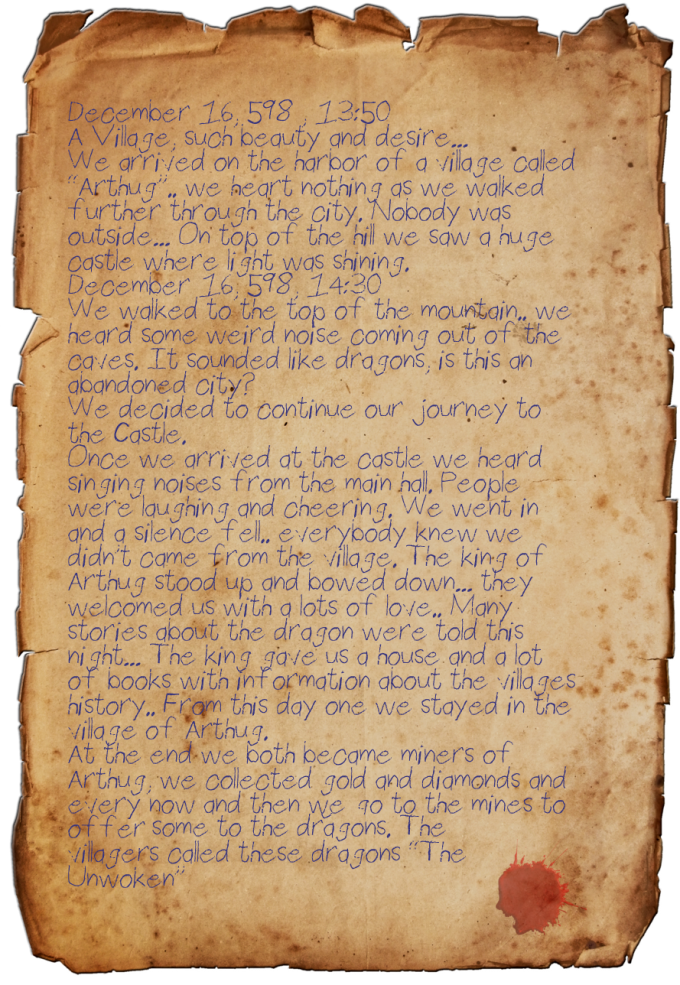 December 16, 598 , 13:50
A Village, such beauty and desire...
We arrived on the harbor of a village called
“Arthug”.. we heart nothing as we walked
further through the city. Nobody was
outside... On top of the hill we saw a huge
castle where light was shining.
December 16, 598, 14:30
We walked to the top of the mountain.. we
heard some weird noise coming out of the
caves. It sounded like dragons, is this an
abandoned city?
We decided to continue our journey to
the Castle.
Once we arrived at the castle we heard
singing noises from the main hall. People
were laughing and cheering. We went in
and a silence fell.. everybody knew we
didn't came from the village. The king of
Arthug stood up and bowed down... they
welcomed us with a lots of love.. Many
stories about the dragon were told this
night... The king gave us a house and a lot
of books with information about the villages
history.. From this day one we stayed in the
village of Arthug.
At the end we both became miners of
Arthug, we collected gold and diamonds and
every now and then we go to the mines to
offer some to the dragons. The
villagers called these dragons “The
Unwoken”